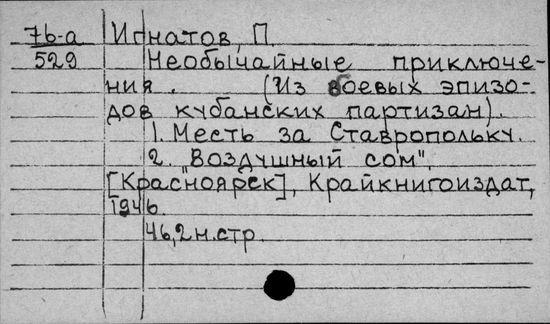 7б-а Игнатов, П.
529 Необычайные приключе-
ния. (Из боевых эпизо-
дов кубанских партизан).
1. Месть за Ставропольку.
2. "Воздушный сом",
[Красноярск], Крайкнигоиздат,
1946.
46,2 н.стр.